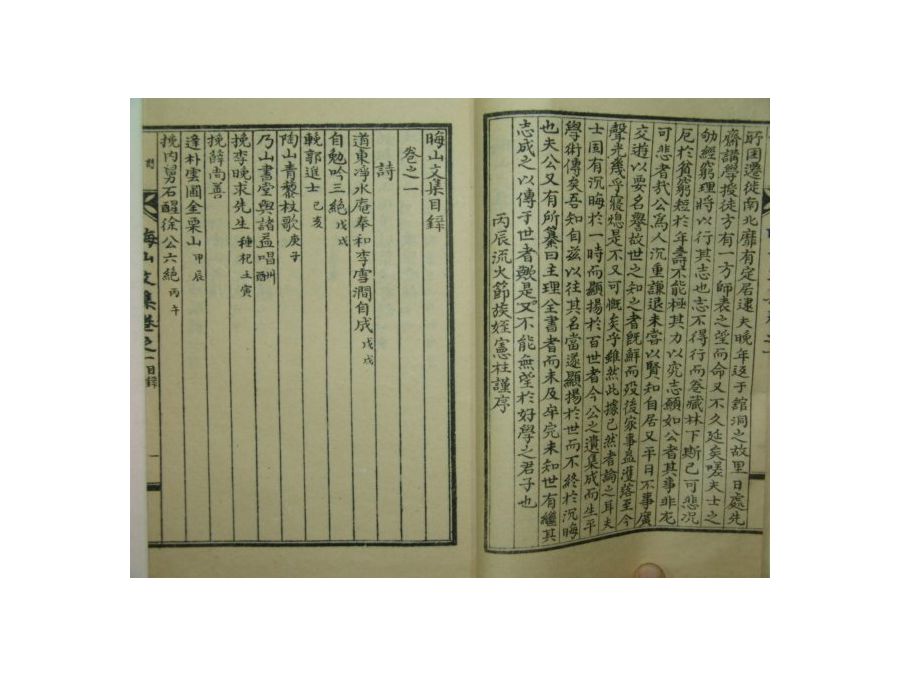 所囷遷徙南北靡有定居逮夫晚年返于館洞之故里日處先
齋講學授徒方有一方師表之望而命又不久延矣嗟夫士之
劬經窮理將以行其志也志不得行而卷藏林下斯已可悲況
厄於貧窮短於年壽不能極其力以究志願如公者其事非尤
可悲者哉公爲人沉重謙退未嘗以賢知自居又平日不事廣
交遊以要名譽故世之知之者旣鮮而歿後家事益濩落至今
聲光幾乎寢熄是不又可慨矣乎雖然此據已然者論之耳夫
士固有沉晦於一時而顯揚於百世者今公之遺集成而生平
學術傳矣吾知自玆以往其名當遂顯揚於世而不終於沉晦
也夫公又有所纂曰主理全書者而未及卒完未知世有繼其
志成之以傳于世者歟是又不能無望於好學之君子也
丙辰流火節族姪憲柱謹序
晦山文集目錄
卷之一
詩
道東淨水庵奉和李雪澗自成 戊戌
自勉吟三絶 戊戌
輓郭進士 己亥
陶山靑藜杖歌 庚子
乃山書堂與諸益唱酬
挽李晚求先生 種杞 壬寅
挽薛尚善
逢朴雲圃全栗山 甲辰
挽內舅石醒徐公六絶 丙午
晦山文集卷之一 目錄 一